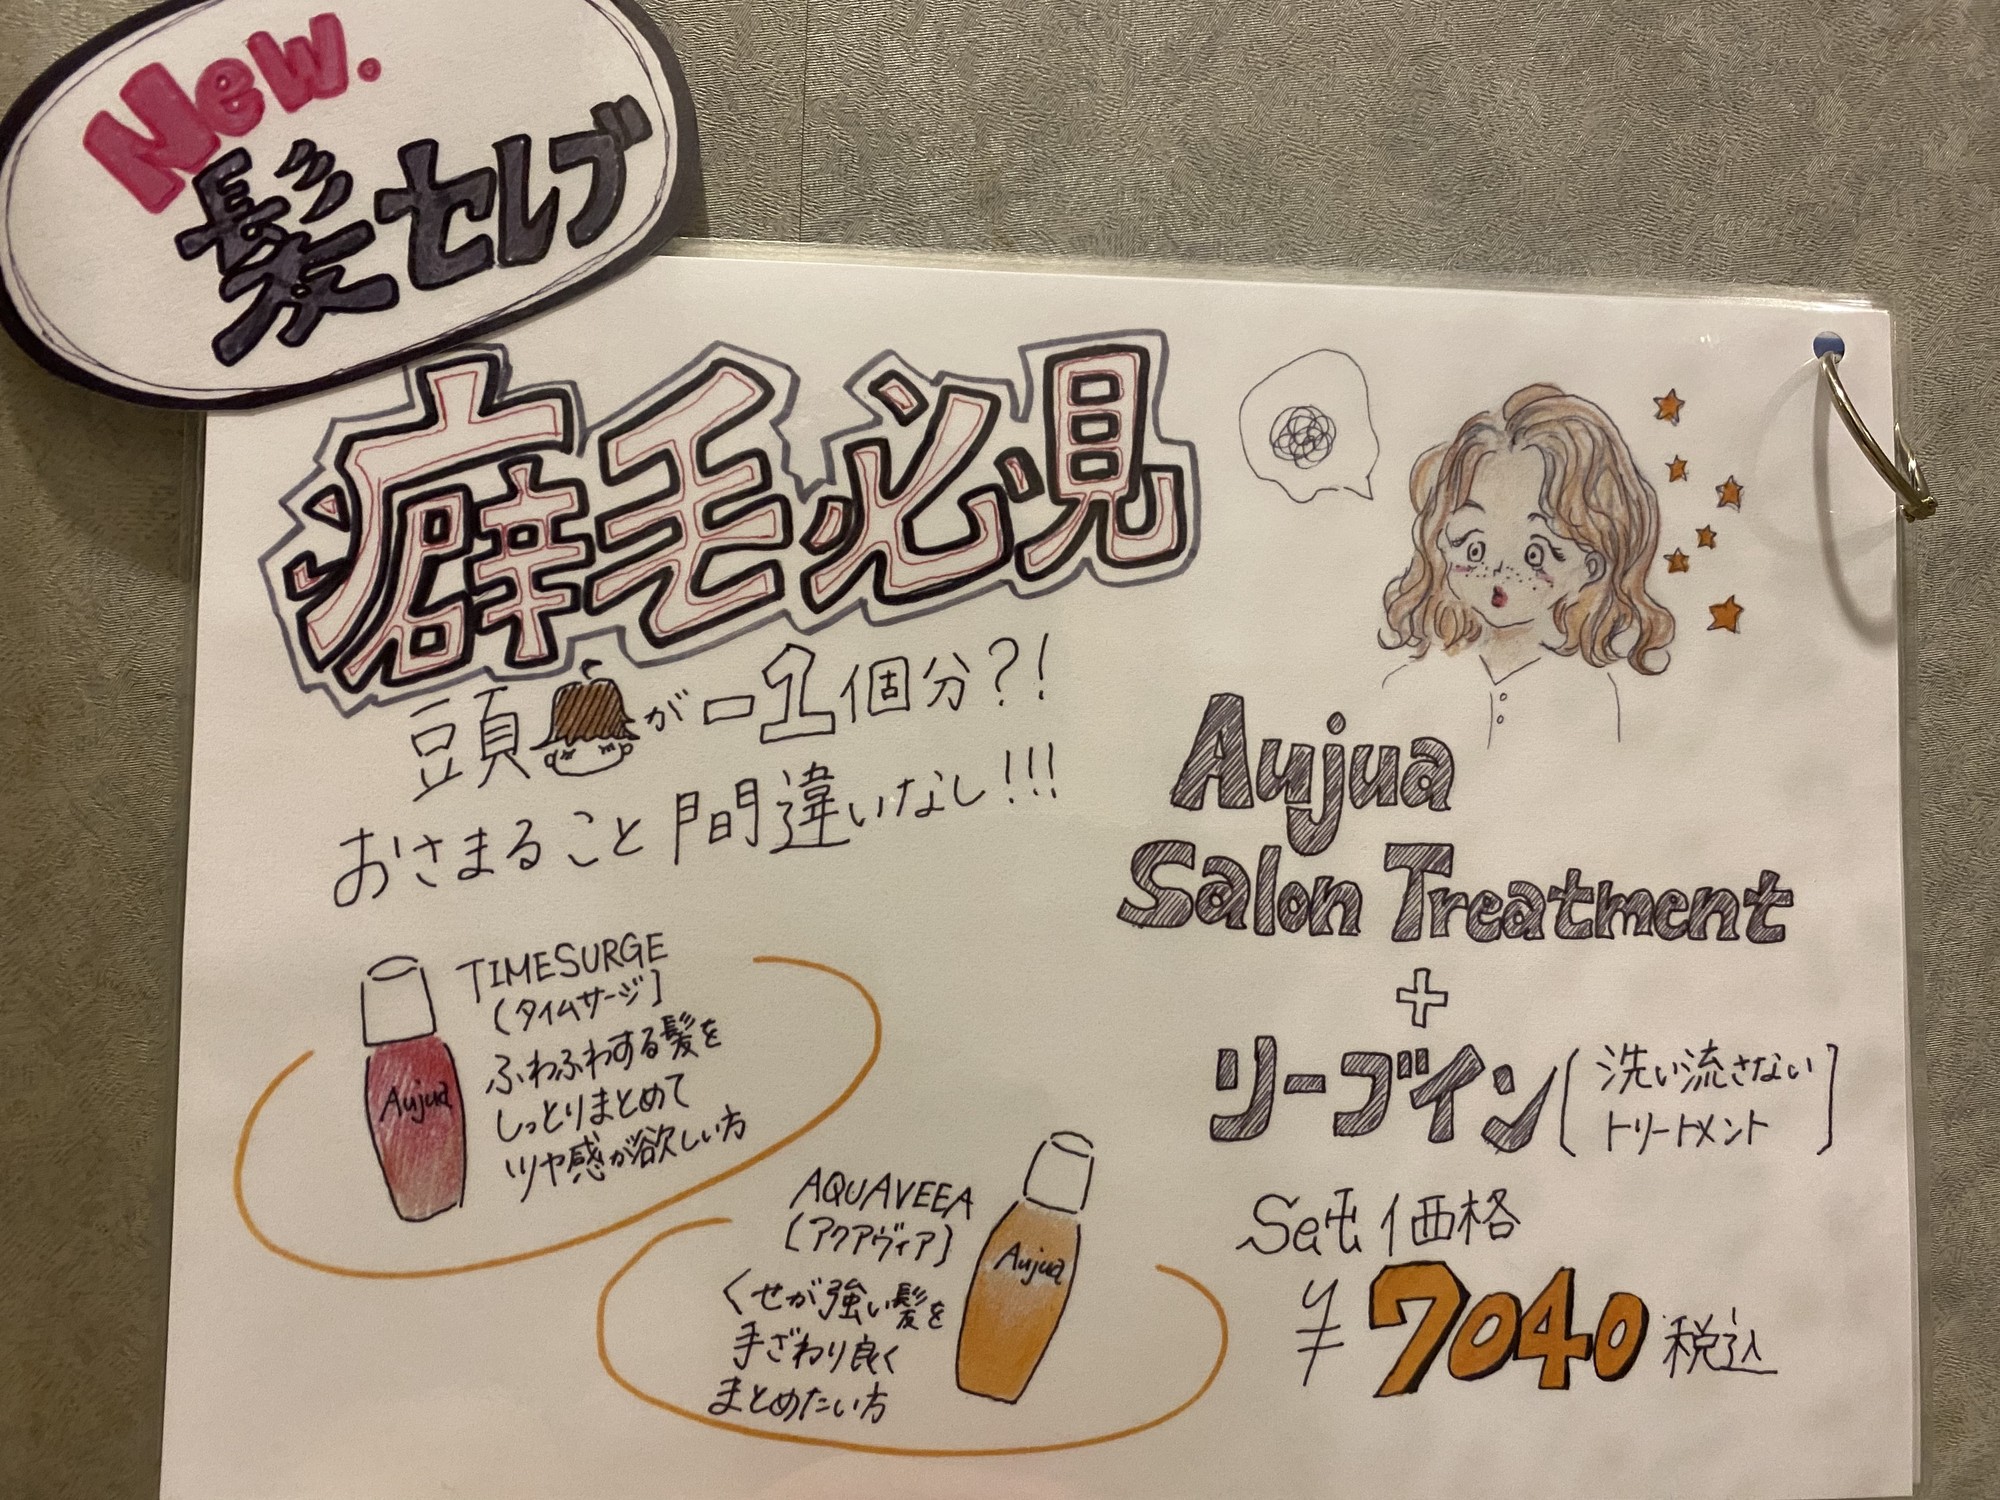 New.
髪セレブ
癖毛必見
頭が-1個分?!
おさまること間違いなし!!!
TIMESURGE
(タイムサージ]
ふわふわする髪を
しっとりまとめて
ツヤ感が欲しい方
Aujua
AQUAVEEA
[アクアヴィア]
くせが強い髪を
手ざわり良く
まとめたい方
Aujua
Aujua
Salon Treatment
+
リーブイン[洗い流さない
トリートメント]
Set価格
¥7040税込